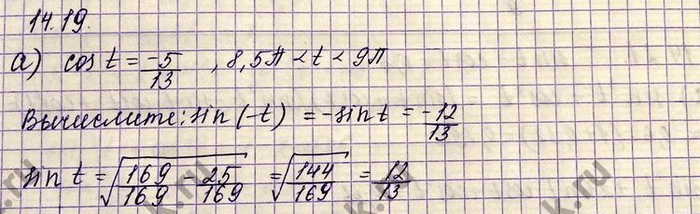 14.19.
а) cos t = -5/13 , 8,5π < t < 9π
Вычислите: sin (-t) = -sin t = -12/13
sin t = √(169/169 - 25/169) = √(144/169) = 12/13
k.ru